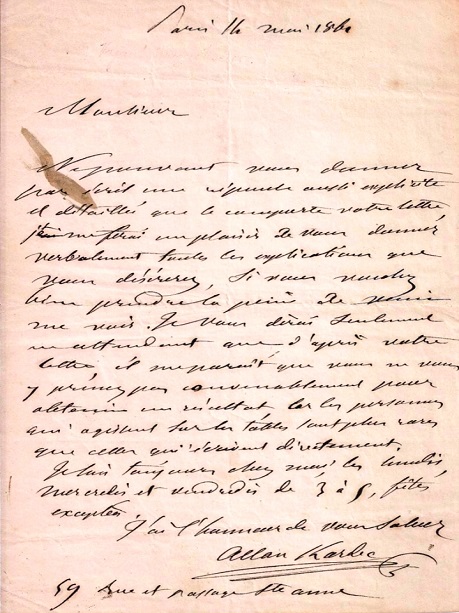 Paris 14 mai 1860
Monsieur
Ne pouvant vous donner
par écrit une réponse aussi explicite
et détaillée que le comporte votre lettre
je me ferai un plaisir de vous donner
verbalement toutes les explications que
vous désirerez, si vous voulez
bien prendre la peine de venir
me voir. Je vous dirai seulement
en attendant que d'après votre
lettre, il me paraît que vous ne vous
y prenez pas convenablement pour
obtenir un résultat, car les personnes
qui agissent sur les tables sont plus rares
que celles qui écrivent directement.
Je suis toujours chez moi les lundis,
mercredis et vendredis de 3 à 5, fêtes
exceptées.
J'ai l'honneur de vous saluer
Allan Kardec
59 rue et passage Ste anne